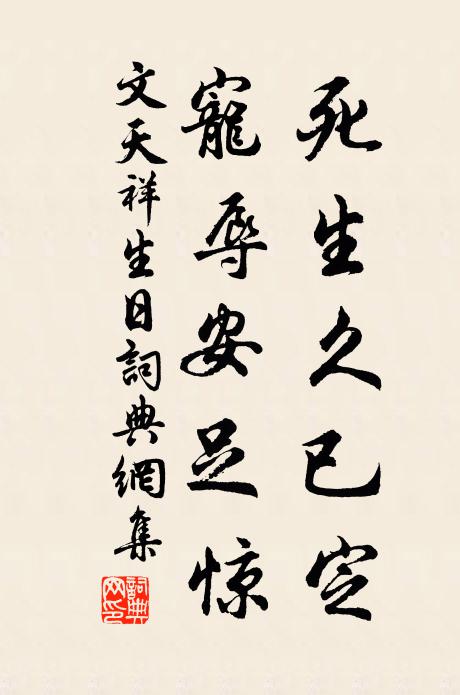 死生久已定
寵辱安足惊
文天祥生日詞典網集
詞典網印